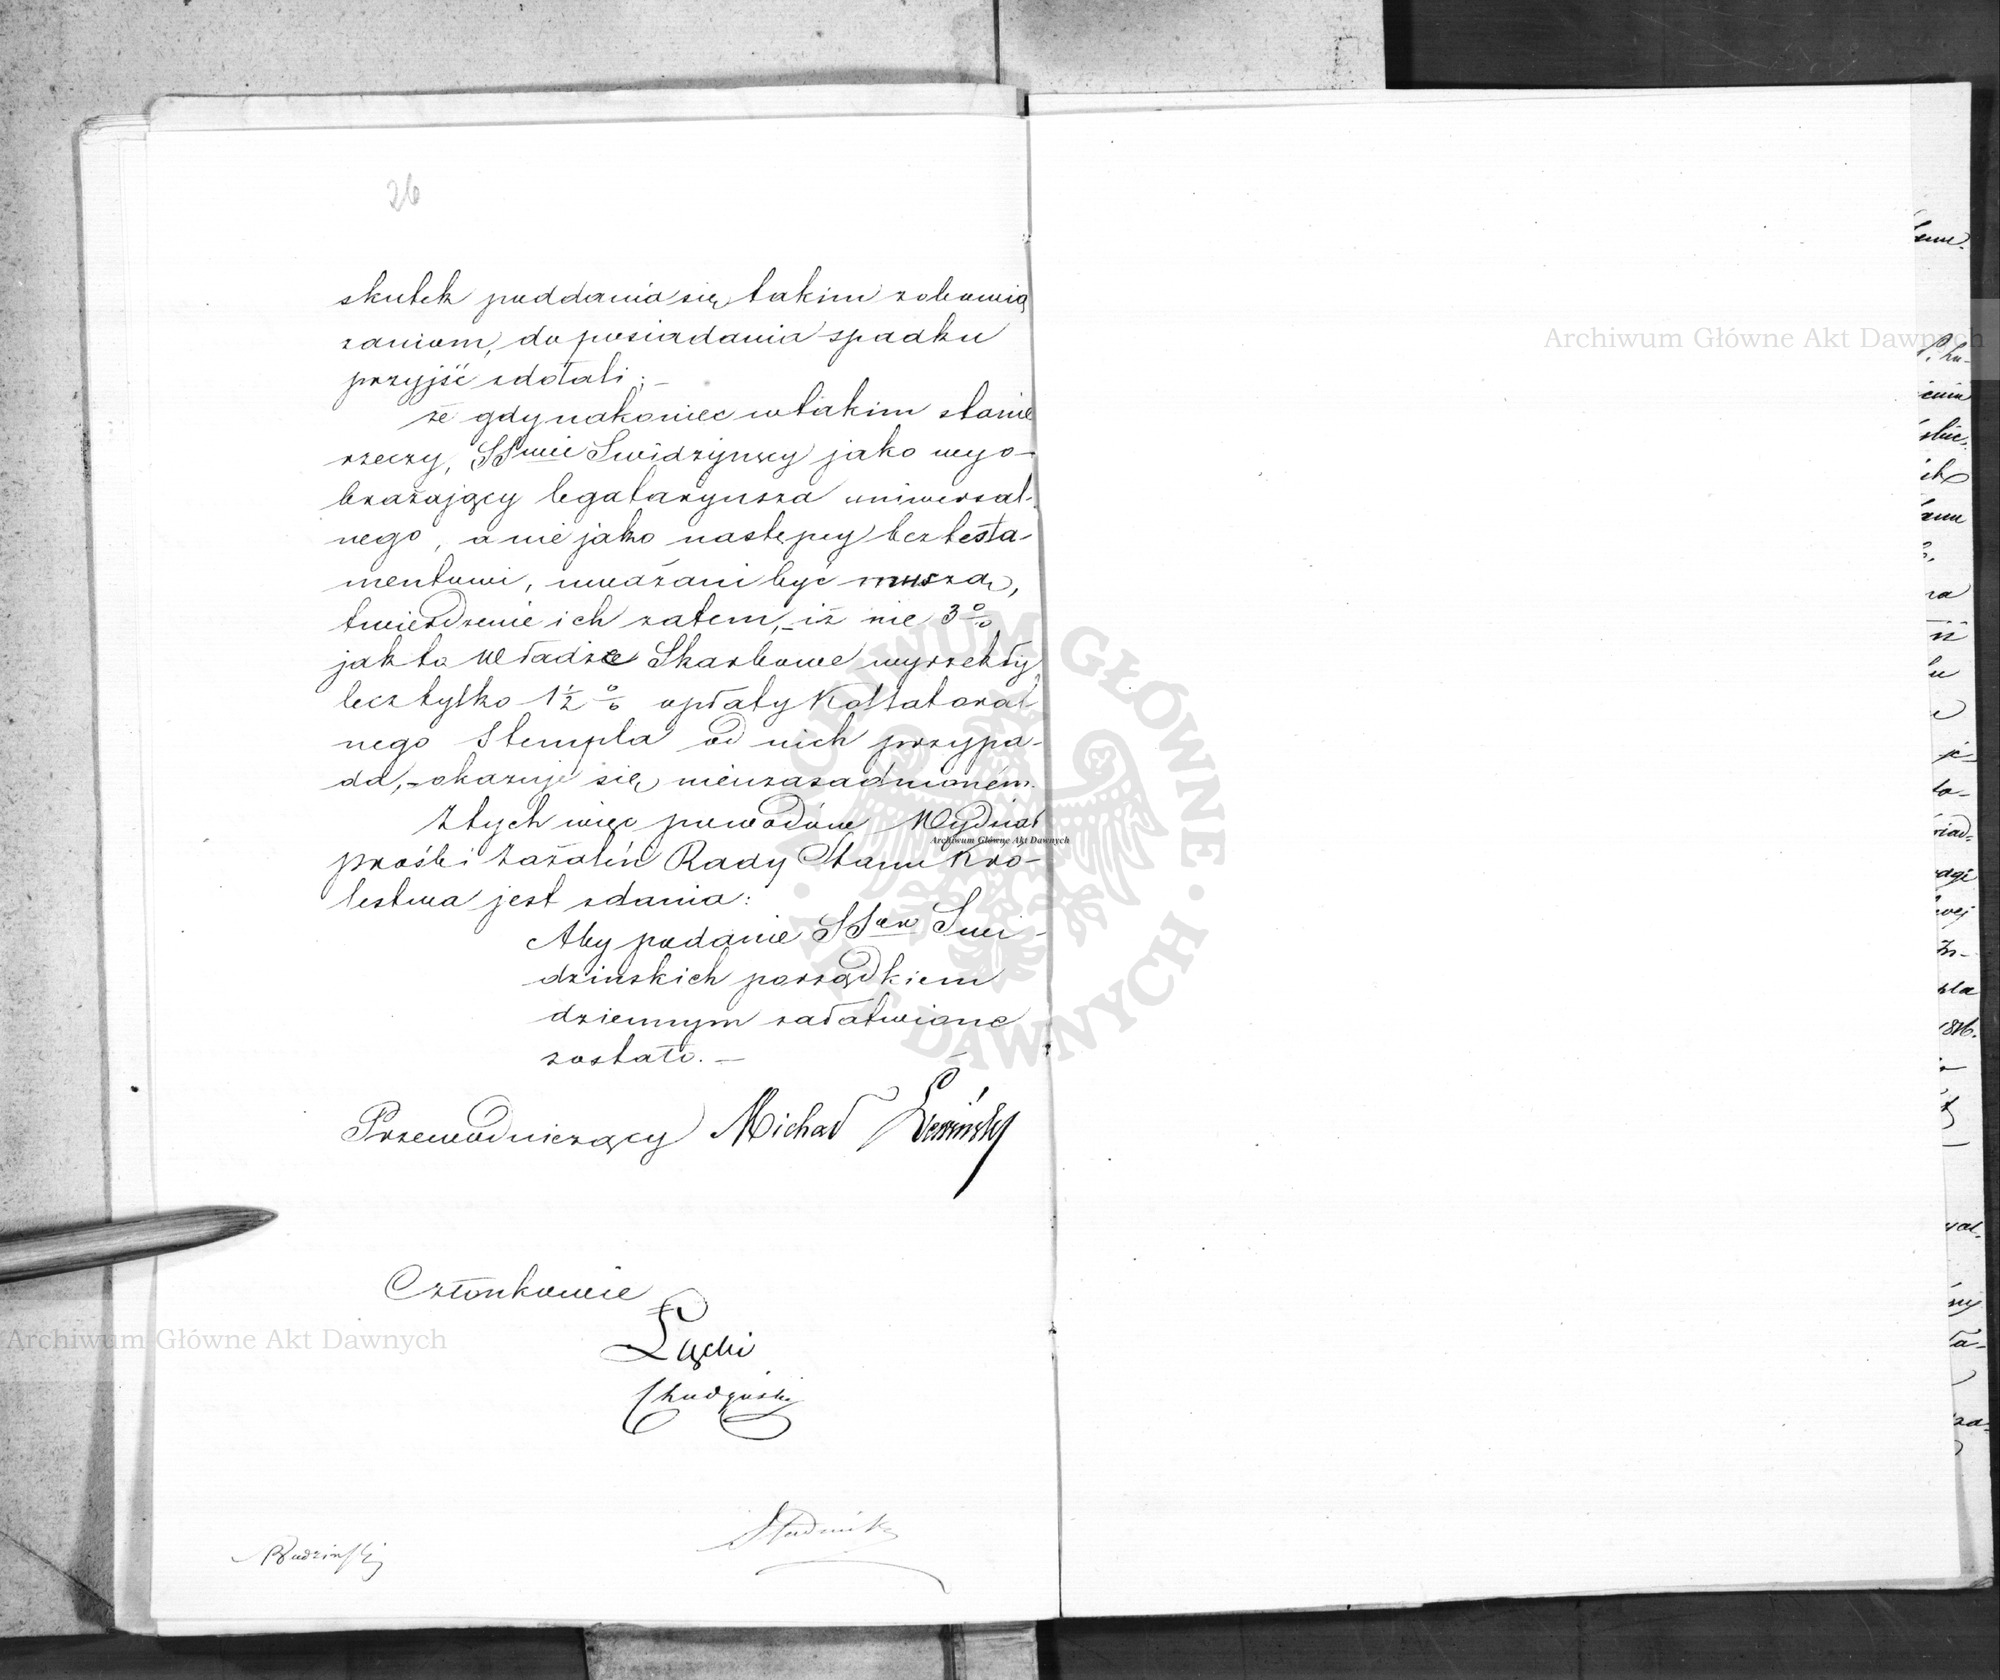 26
skutek poddania się takim zobowią
zaniom, do posiadania spadku
przyjść zdołali; —
że gdy nakoniec w takim stanie
rzeczy, SSwie Swidzińscy jako wyo-
brażający legataryusza uniwersal-
nego, a nie jako następcy beztesta-
mentowi, uważani być muszą,
twierdzenie ich zatem, – iż nie 3%
jak to Władze Skarbowe wyrzekły,
lecz tylko 1½ % opłaty Kollateral
nego Stempla od nich przypa-
da, – okazuje się nieuzasadnioném.
Z tych więc powodów Wydział
próśb i zażaleń Rady Stanu Kró-
lestwa jest zdania:
Aby podanie SSów Swi-
dzińskich porządkiem
dziennym załatwione
zostało. —
Przewodniczący Michał
Członkowie
Łęcki
Budziński
Archiwum Główne Akt Dawnych
Archiwum Główne Akt Dawnych
Archiwum Główne Akt Dawnych
ARCHIWUM GŁÓWNE AKT DAWNYCH